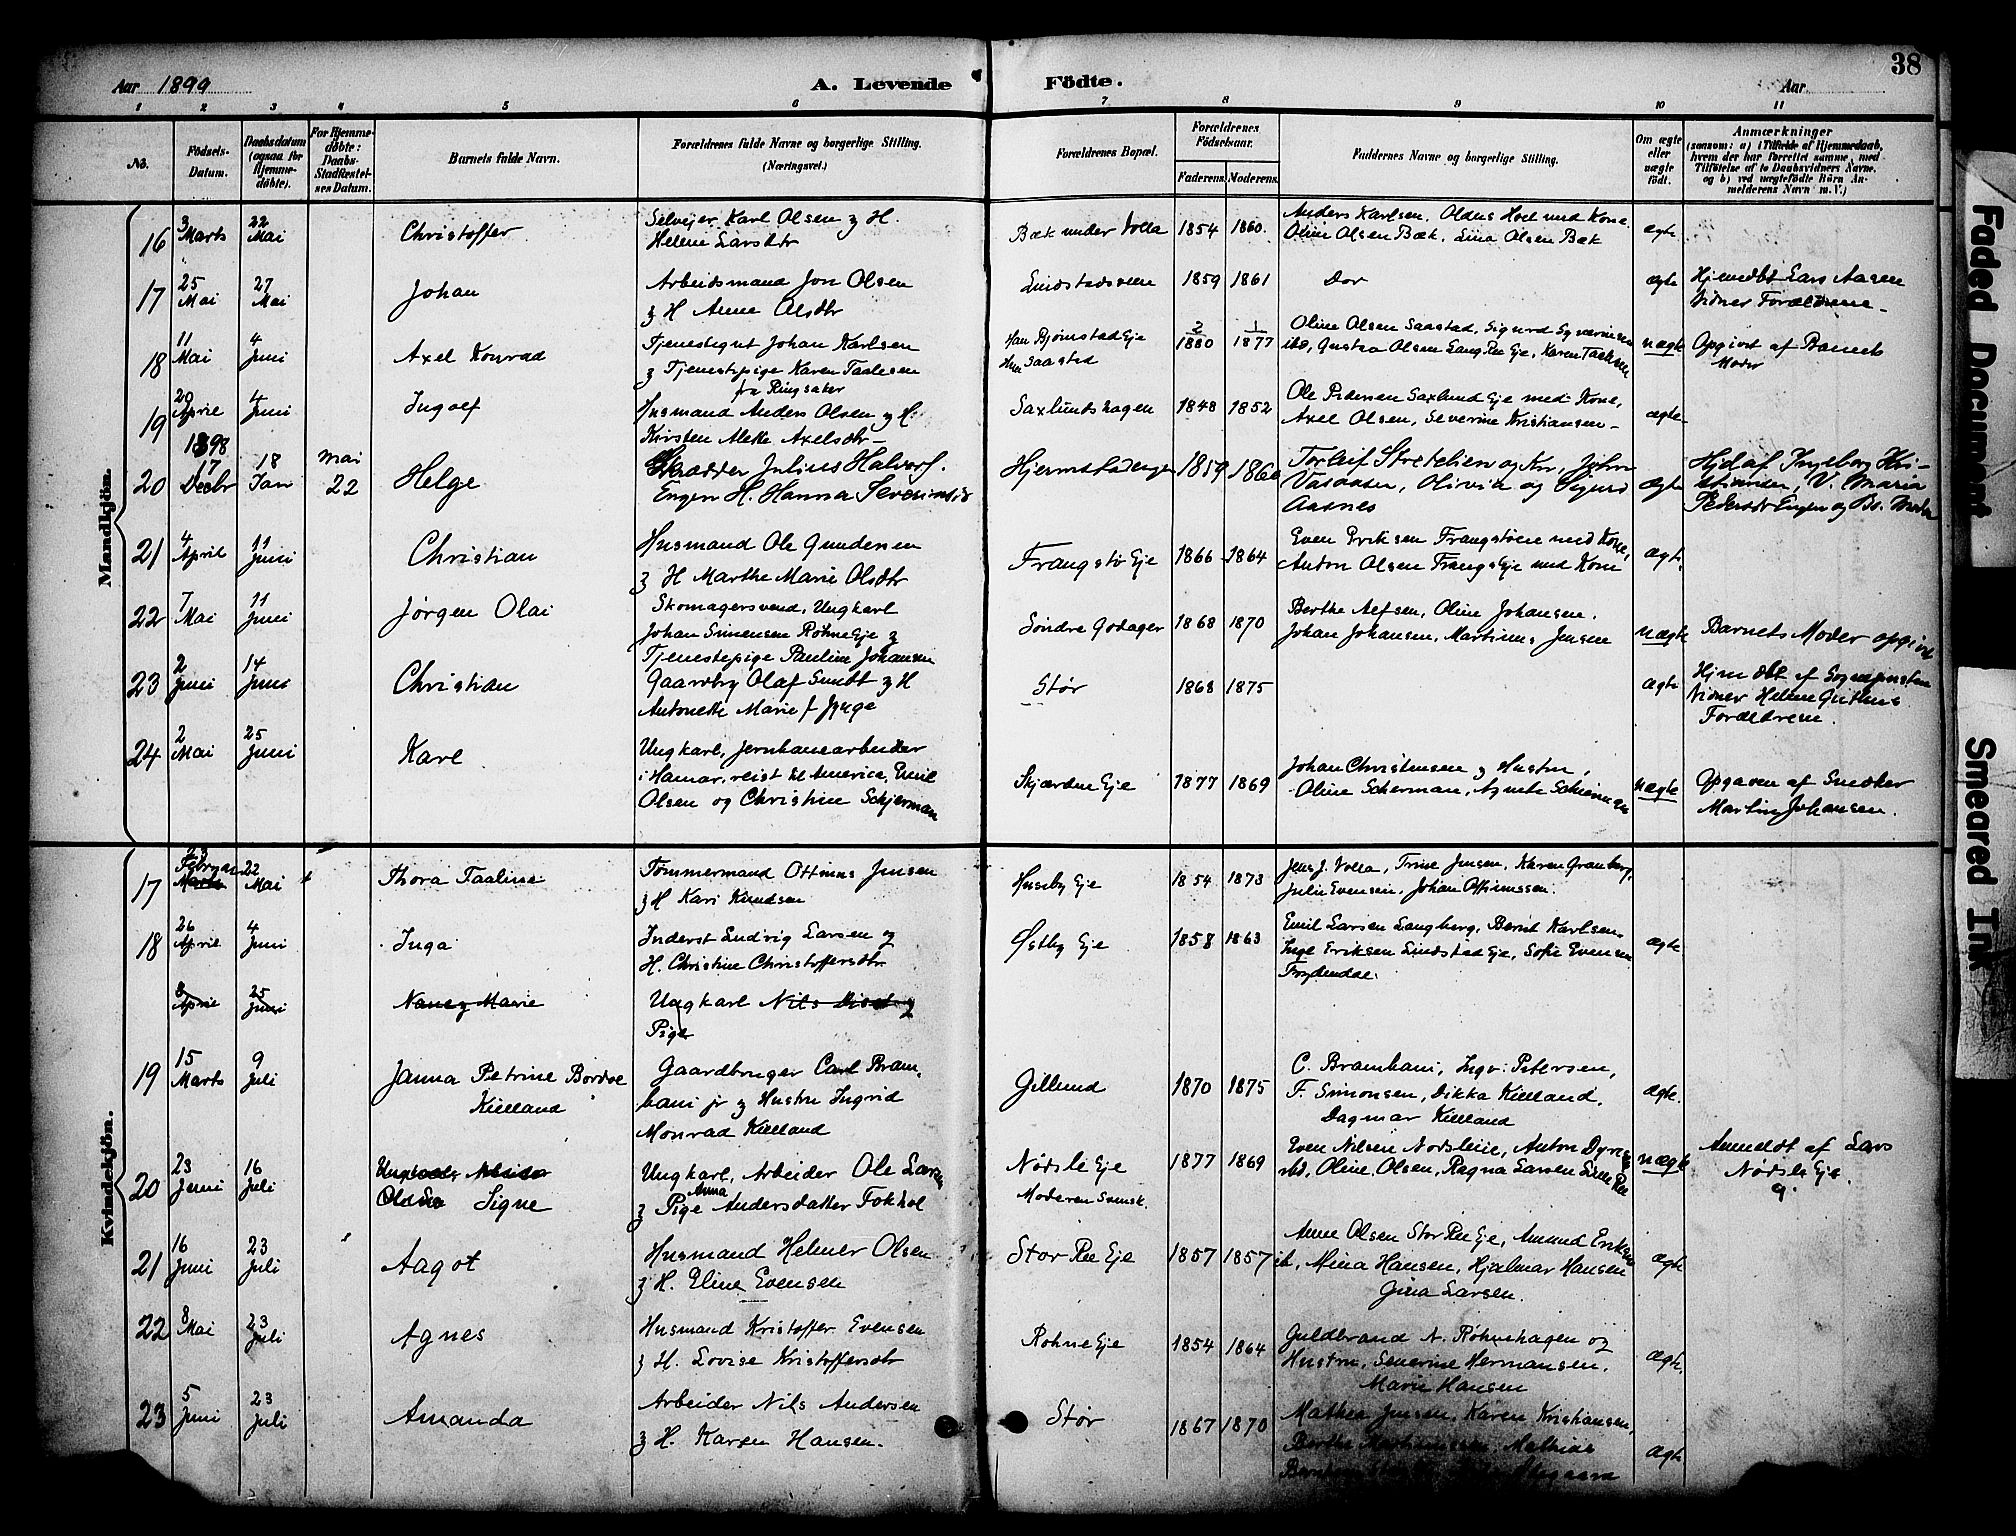 38
Aar 1899 A. Levende Födte. Aar
1 2 3 4 5 6 7 8 9 10 11
No. Födsels-Datum. Daabsdatum (ogsaa for Hjemmedöbte). For Hjemmedöbte: Daabs-Stadfæstelses Datum. Barnets fulde Navn. Forældrenes fulde Navne og borgerlige Stilling. (Næringsvei.) Forældrenes Bopæl. Forældrenes Födselsaar. Faderens. Moderens. Faddernes Navne og borgerlige Stilling. Om ægte eller uægte födt. Anmærkninger (saasom: a) i Tilfælde af Hjemmedaab, hvem der har forrettet samme, med Tilföielse af to Daabsvidners Navne, og b) ved uægtefödte Börn Anmelderens Navn m. V.)
Mandkjön.
16 3 Marts 22 Mai Christoffer Selvejer Karl Olsen og H. Helene Larsdtr Bæk under Volla 1854 1860. Anders Karlsen, Hoel med Kone, Oline Olsen Bæk, Lina Olsen Bæk ægte
17 25 Mai 27 Mai Johan Arbeidsmand Jon Olsen og H Anne Olsdtr Lindstadsveen 1859 1861 Dor ægte Hjemdbt Lars Aasen Vidner Forældrene
18 11 Mai 4 Juni Axel Konrad Tjenestegut Johan Karlsen og Tjenestepige Karen Taalesen fra Ringsaker Han Bjørnstad Eje Hun Saastad 2/1880 1/1877 Oline Olsen Saastad, Sigurd ibd, Gustav Olsen Lang Ree Eje, Karen uægte Opgivet af Barnets Moder
19 20 April 4 Juni Ingolf Husmand Anders Olsen og H. Kirsten Alette Axelsdtr Saxlundshagen 1848 1852 Ole Pedersen Saxlund Eje med Kone, Axel Olsen, Severine Kristiansen ægte
20 1898 17 Decbr 18 Jan Mai 22 Helge Skrædder Julius Halvors. Engen H. Hanna Hjermstadengen 1859 1860 Torleif og Kone, John Olivia og Sigurd Aasnes ægte Hjd af Ingeborg Kristiansen, V. Maria Pedersdtr Engen og
21 4 April 11 Juni Christian Husmand Ole Gundersen og H Marthe Marie Olsdtr Frangstø Eje 1866 1864 Even Eriksen Frangstøen med Kone, Anton Olsen Frangs Eje med Kone ægte.
22 7 Mai 11 Juni Jørgen Olai Skomagersvend, Ungkarl Johan Simensen Røhne Eje og Tjenestepige Pauline Johansen Søndre Godager 1868 1870 Berthe Alfsen, Oline Johansen. Johan Johansen, Martinus Jensen uægte Barnets Moder opgivet
23 2 Juni 14 Juni Christian Gaardbr Olaf og H Antonette Marie f Stør 1868 1875 ægte Hjm dbt af Sognepresten Vidner Helene Forældrene.
24 2 Mai 25 Juni Karl Ungkarl, Jernbanearbeider i Hamar, reist til America, Emil Olsen og Christine Schjerman Skjærden Eje 1877 1869 Johan Christensen og Hustru, Oline Scherman, Agnete uægte Opgaven af Snedker Martin Johansen.
Kvindekjön.
17 23 Februar Marts 22 Mai Thora Taaline Tømmermand Ottinus Jensen og H Kari Knudsen Huseby Eje 1854 1873 Jens J. Volla, Trine Jensen, Karen Granberg, Julie Evensen, Johan Ottinussen.
18 26 April 4 Juni Inga Inderst Ludvig Larsen og H. Christine Christoffersdtr Østby Eje 1858 1863 Emil Larsen Langberg, Bernt Karlsen, Inge Eriksen Lindstad Eje, Sofie Evensen Frydendal. ægte
8 April 25 Juni Nancy Marie Ungkarl Nils og Pige
19 15 Marts 9 Juli Janna Petrine Bordoe Kielland Gaardbruger Carl Bramhani jr og Hustru Ingrid Monrad Kielland Gillund 1870 1875 C. Bramhani, Ingv. Petersen, F. Simonsen, Dikka Kielland, Dagmar Kielland ægte.
20 23 Juni 16 Juli Signe Ungkarl, Arbeider Ole Larsen og Pige Anna Andersdatter Fokhol Nøsle Eje Moderen Svensk. 1877 1869 Even Nilsen Nordsleie, Anton ibd, Oline Olsen, Ragna Larsen uægte Anmeldt af Lars Nødsle Eje.
21 16 Juni 23 Juli Aagot Husmand Helmer Olsen og H. Eline Evensen Stor Ree Eje 1857 1857 Anne Olsen Stor Ree Eje, Amund Eriksen ib, Mina Hansen, Hjalmar Hansen Gina Larsen. ægte
22 8 Mai 23 Juli Agnes Husmand Kristoffer Evensen og H. Lovise Kristoffersdtr Rohne Eje 1854 1864 Guldbrand N. Røhnehagen og Hustru, Severine Hermansen, Marie Hansen ægte
23 5 Juni 23 Juli Amanda Arbeider Nils Andersen og H. Karen Hansen. Stør 1867 1870 Mathea Jensen, Karen Kristiansen, Berthe Mathias ægte
Faded Document
Smeared Ink